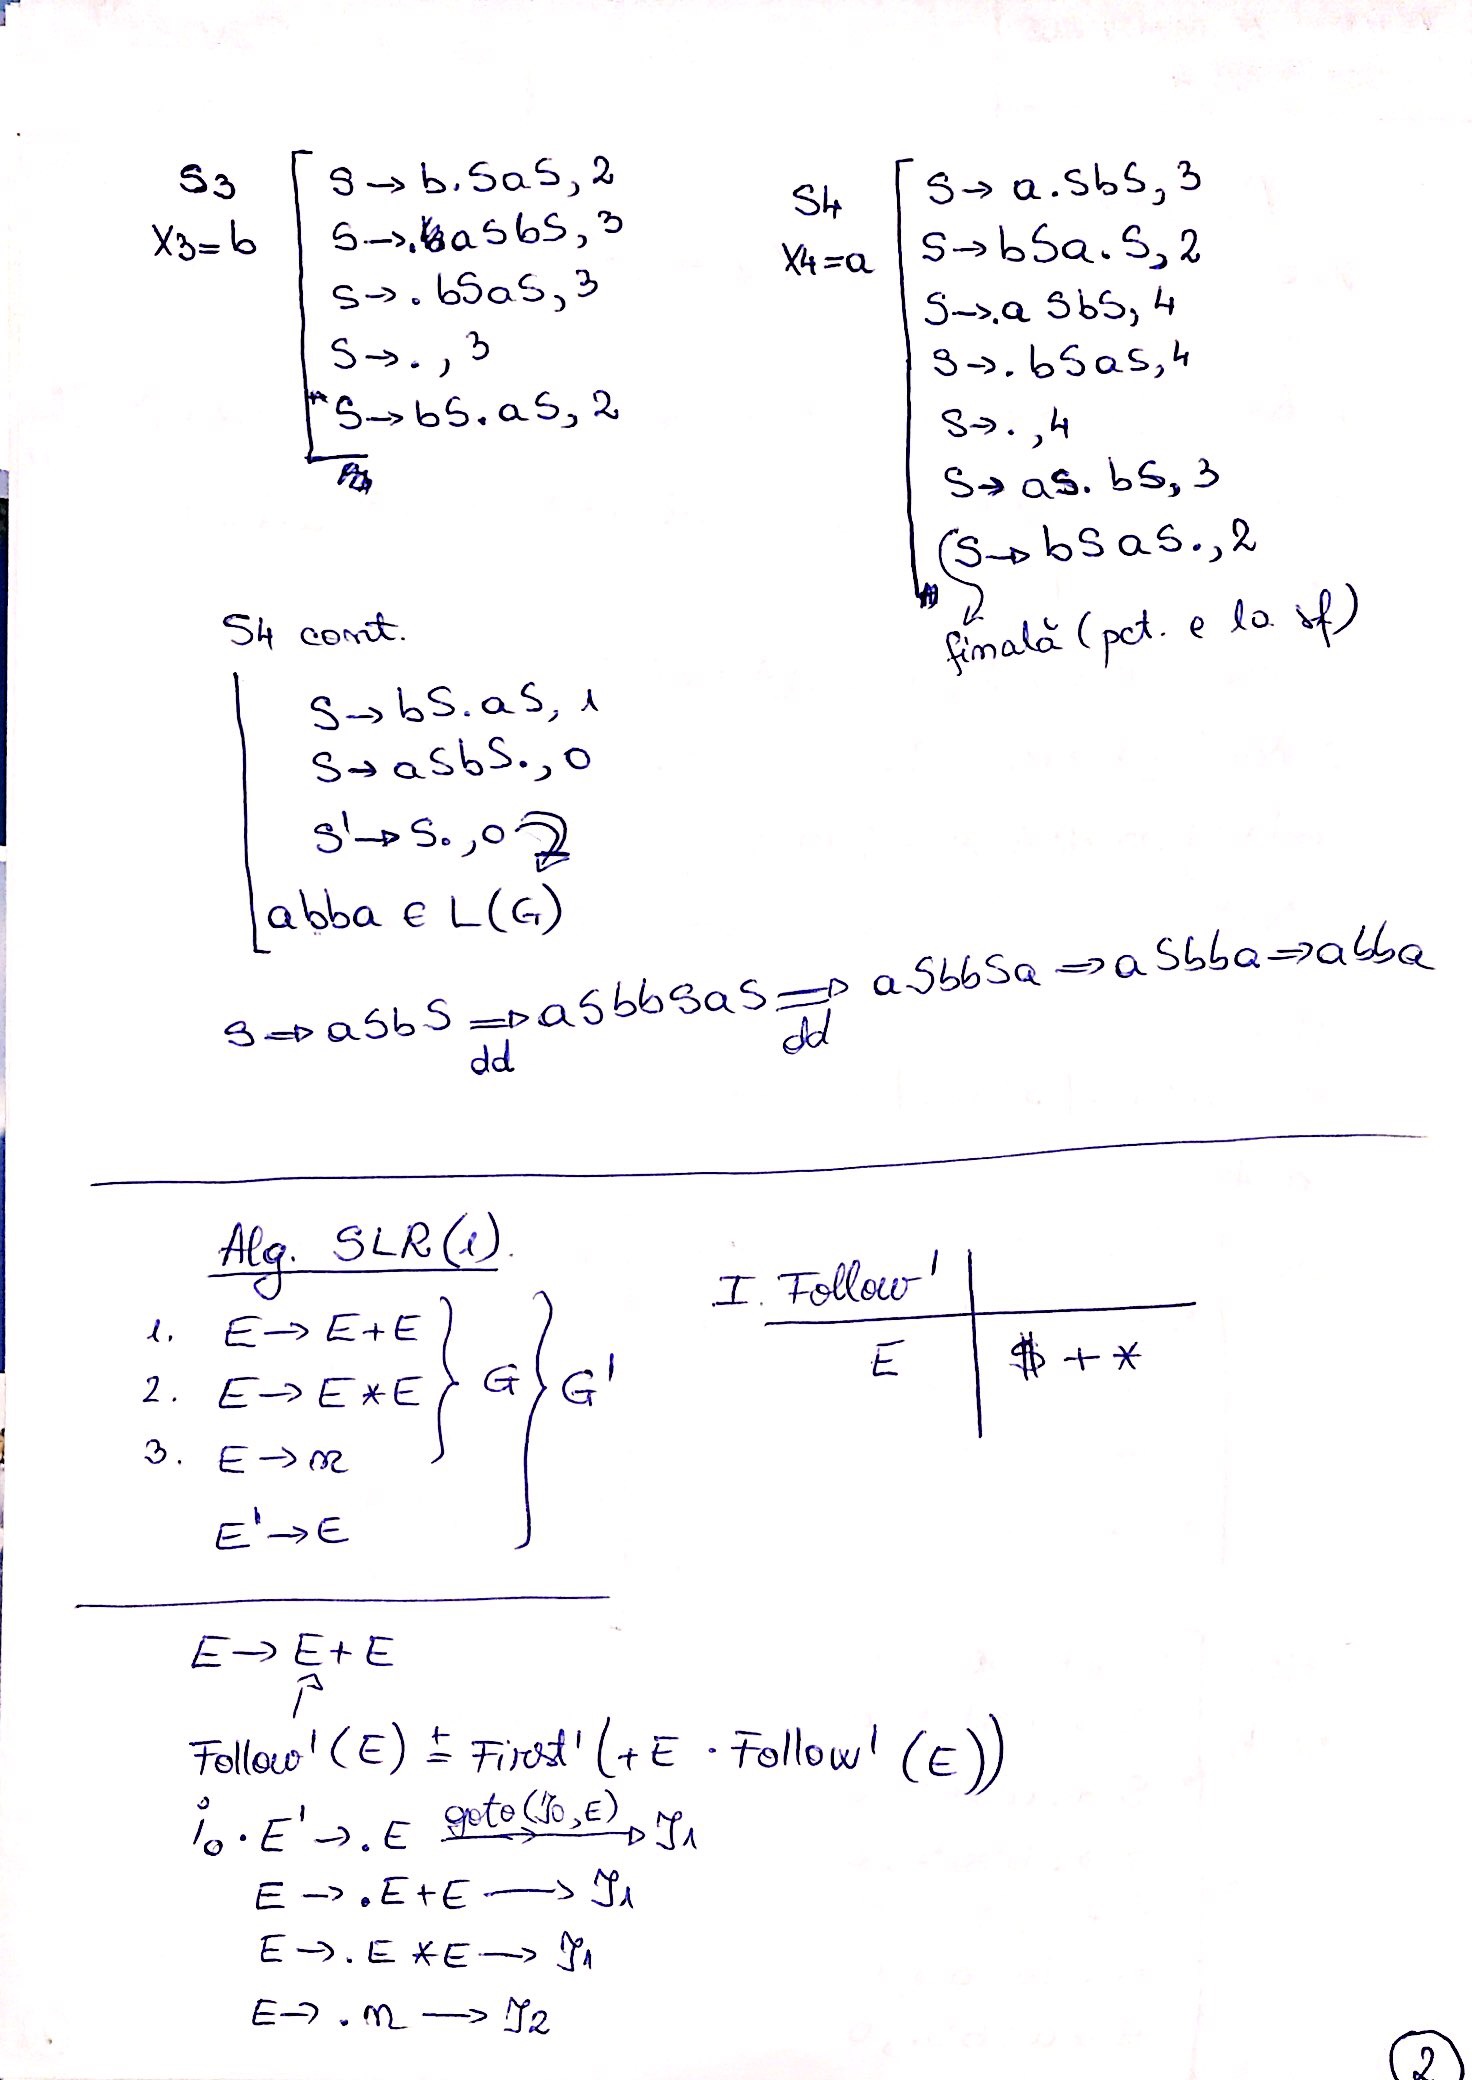 S3
X3=b
S→b.SaS,2
S→.aSbS,3
S→.bSaS,3
S→.,3
S→bS.aS,2
S4
X4=a
S→a.SbS,3
S→bSa.S,2
S→.aSbS,4
S→.bSaS,4
S→.,4
S→aS.bS,3
S→bSaS.,2
finală (pct. e la sf)
S4 cont.
S→bS.aS,1
S→aSbS.,0
S'→S.,0
abba ∈ L(G)
S⇒aSbS ⇒ aSbbSaS ⇒ aSbbSa ⇒ aSbba ⇒ abba
dd dd
Alg. SLR(1).
1. E→E+E
2. E→E*E
3. E→n
E'→E
G G'
I. Follow'
E $ + *
E→E+E
↑
Follow'(E) ±= First'(+E · Follow'(E))
i0. E'→.E goto(I0,E) → I1
E→.E+E → I1
E→.E*E → I1
E→.n → I2
2